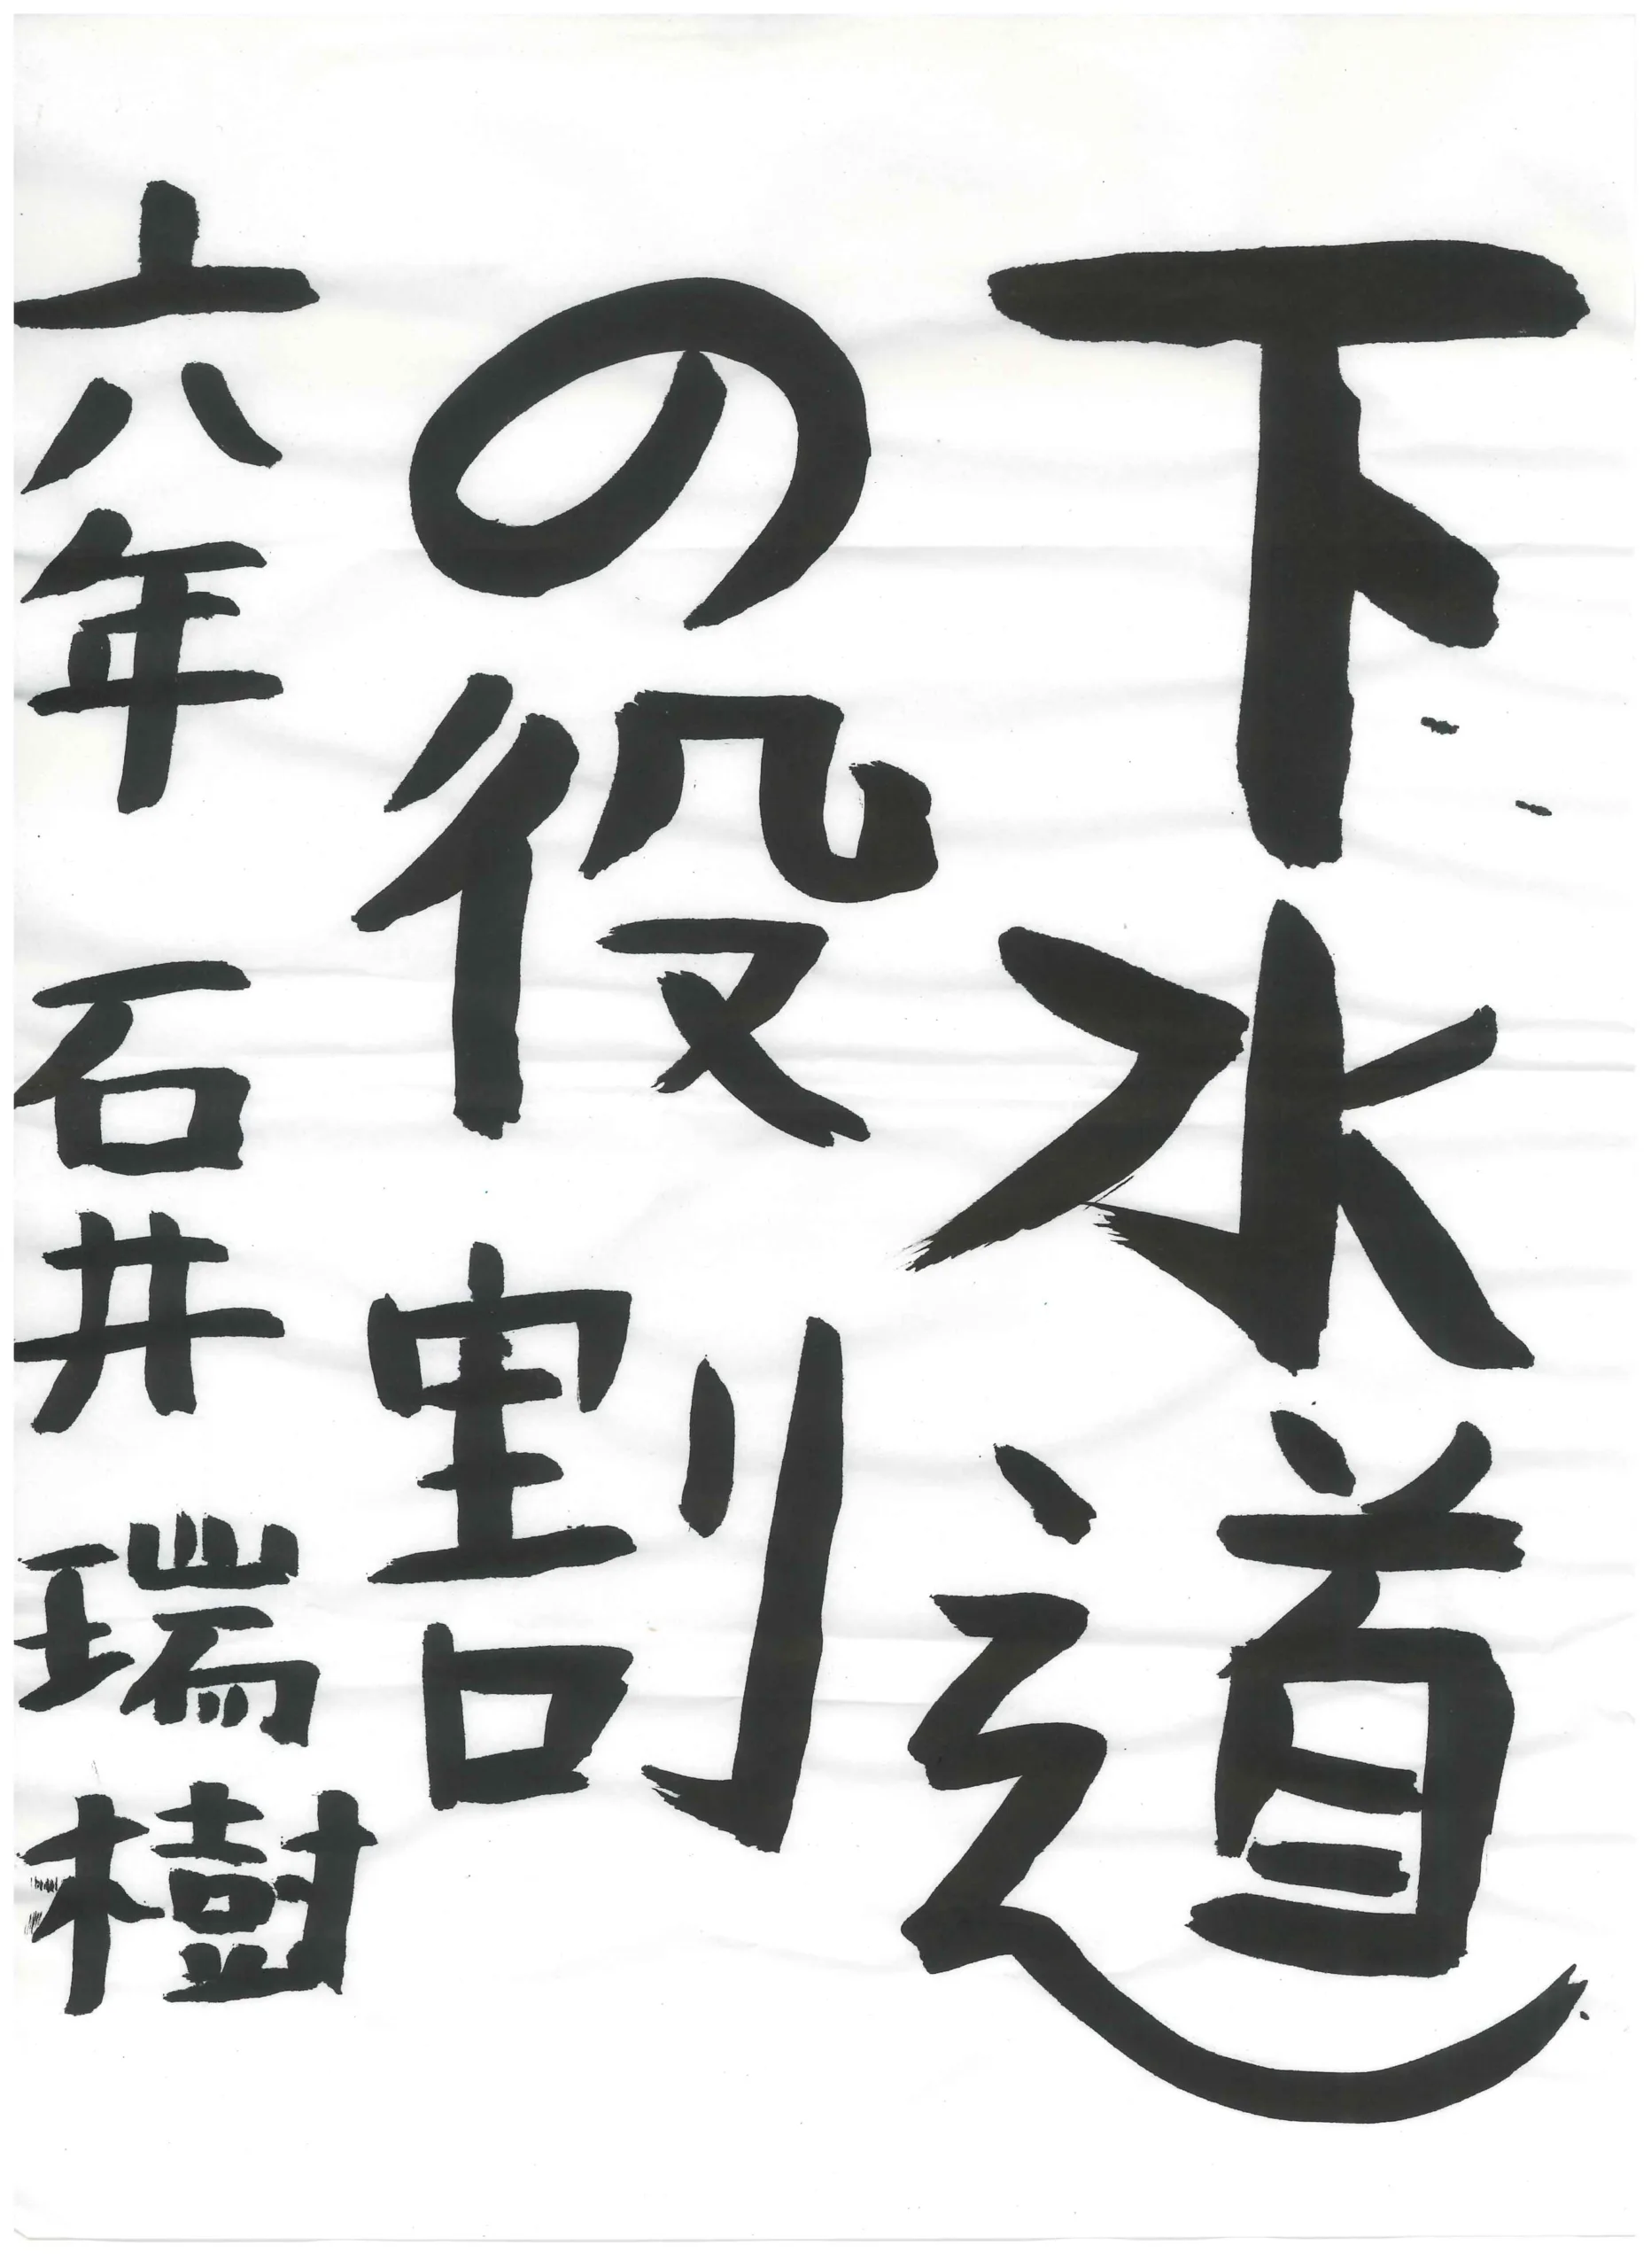 下水道
の役割
六年 石井 瑞樹